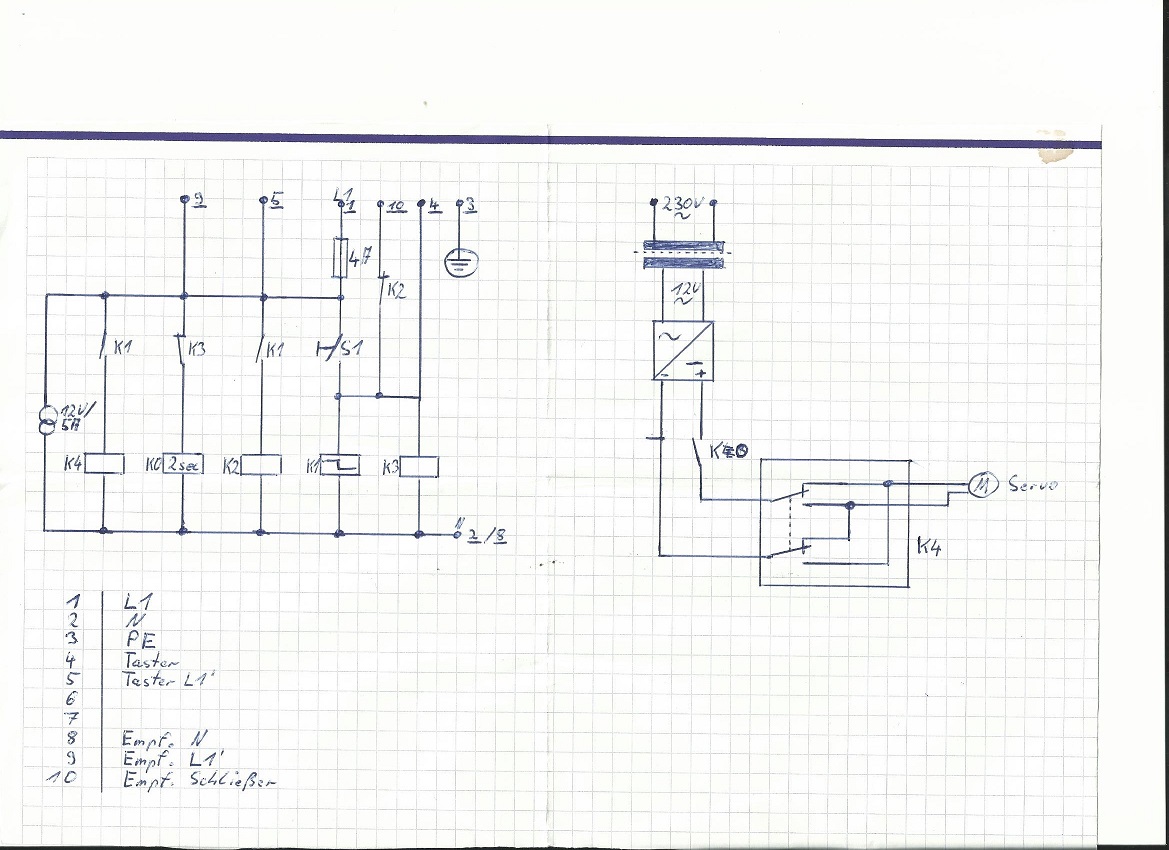 9 5 L1 1 10 4 3
230V ~
4A
K2
12V ~
K1 K3 K1 S1
~ - - +
12V/
5A
K4 K0 2sec K2 K1 K3
M Servo
N
2/8
K4
1 L1
2 N
3 PE
4 Taster
5 Taster L1'
6
7
8 Empf. N
9 Empf. L1'
10 Empf. Schließer